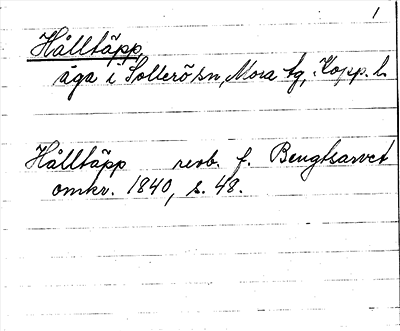 1
Hålltäpp,
äga i Sollerö sn, Mora tg, Kopp. l.
Hålltäpp resb. f. Bengtsarvet
omkr. 1840, s. 48.